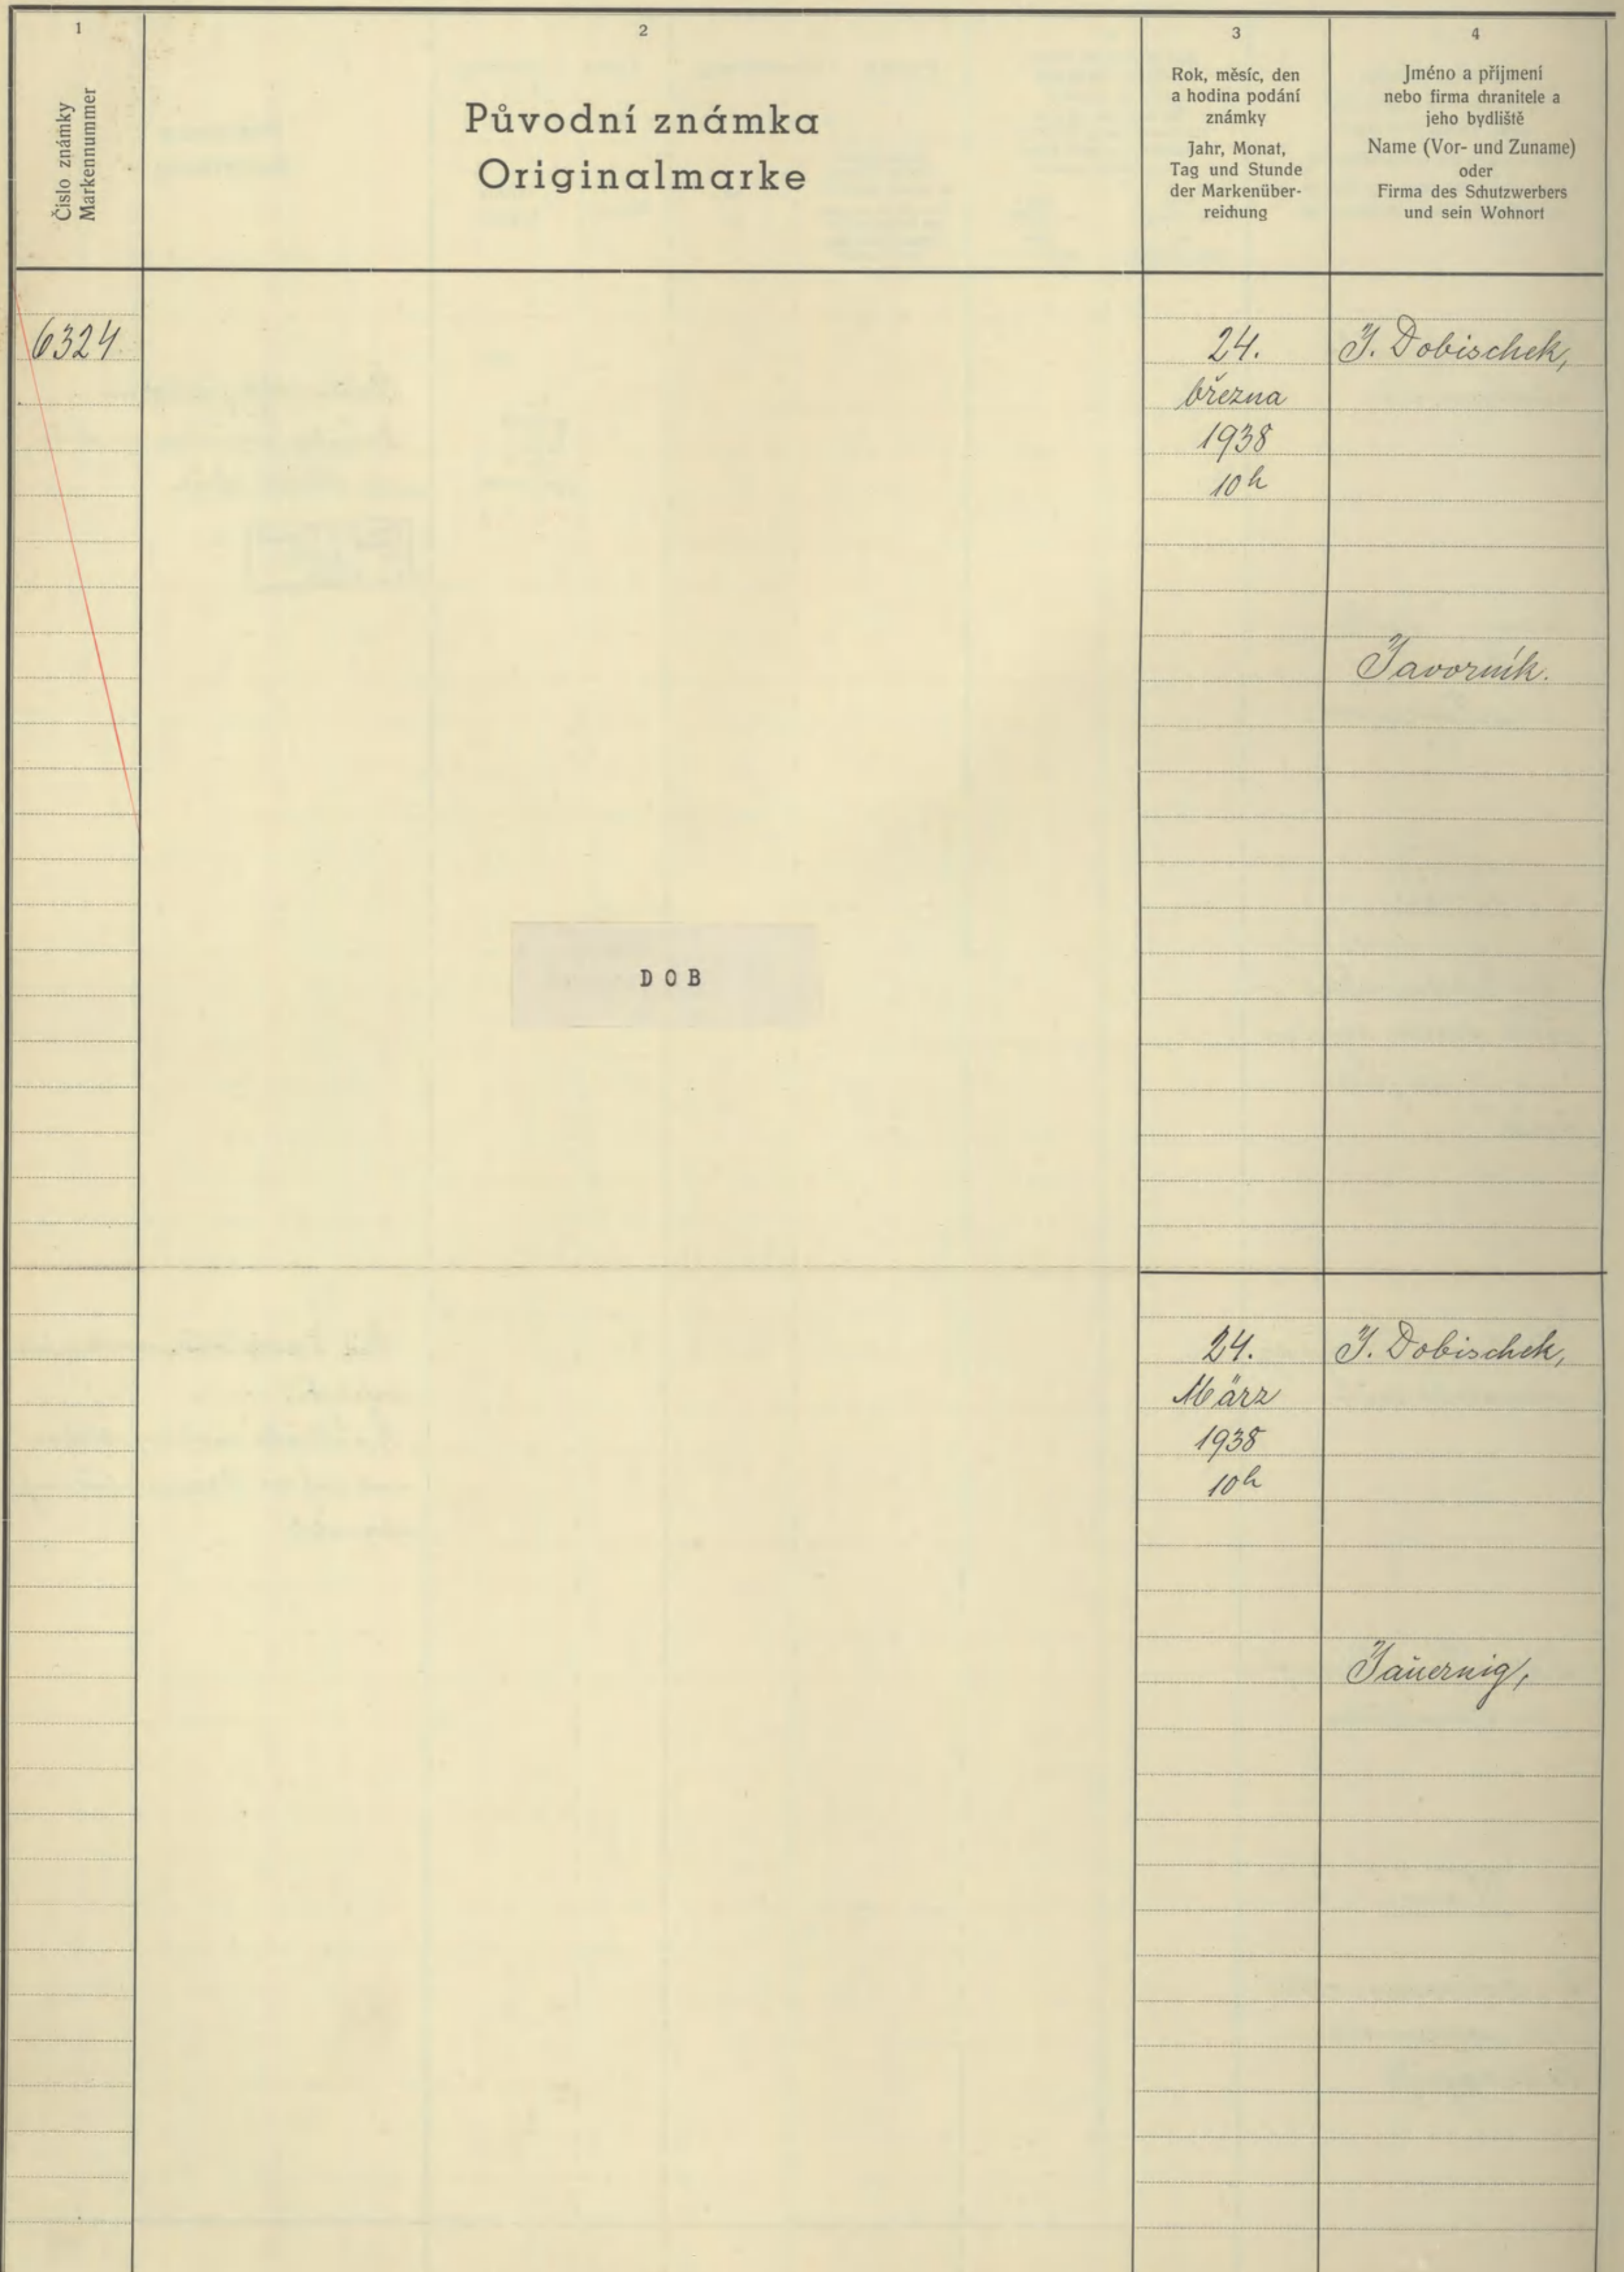 1
Číslo známky
Markennummer
2
Původní známka
Originalmarke
3
Rok, měsíc, den
a hodina podání
známky
Jahr, Monat,
Tag und Stunde
der Markenüber-
reichung
4
Jméno a příjmení
nebo firma chranitele a
jeho bydliště
Name (Vor- und Zuname)
oder
Firma des Schutzwerbers
und sein Wohnort
6324
24.
března
1938
10h
J. Dobischek,
Javorník.
DOB
24.
März
1938
10h
J. Dobischek,
Jauernig,